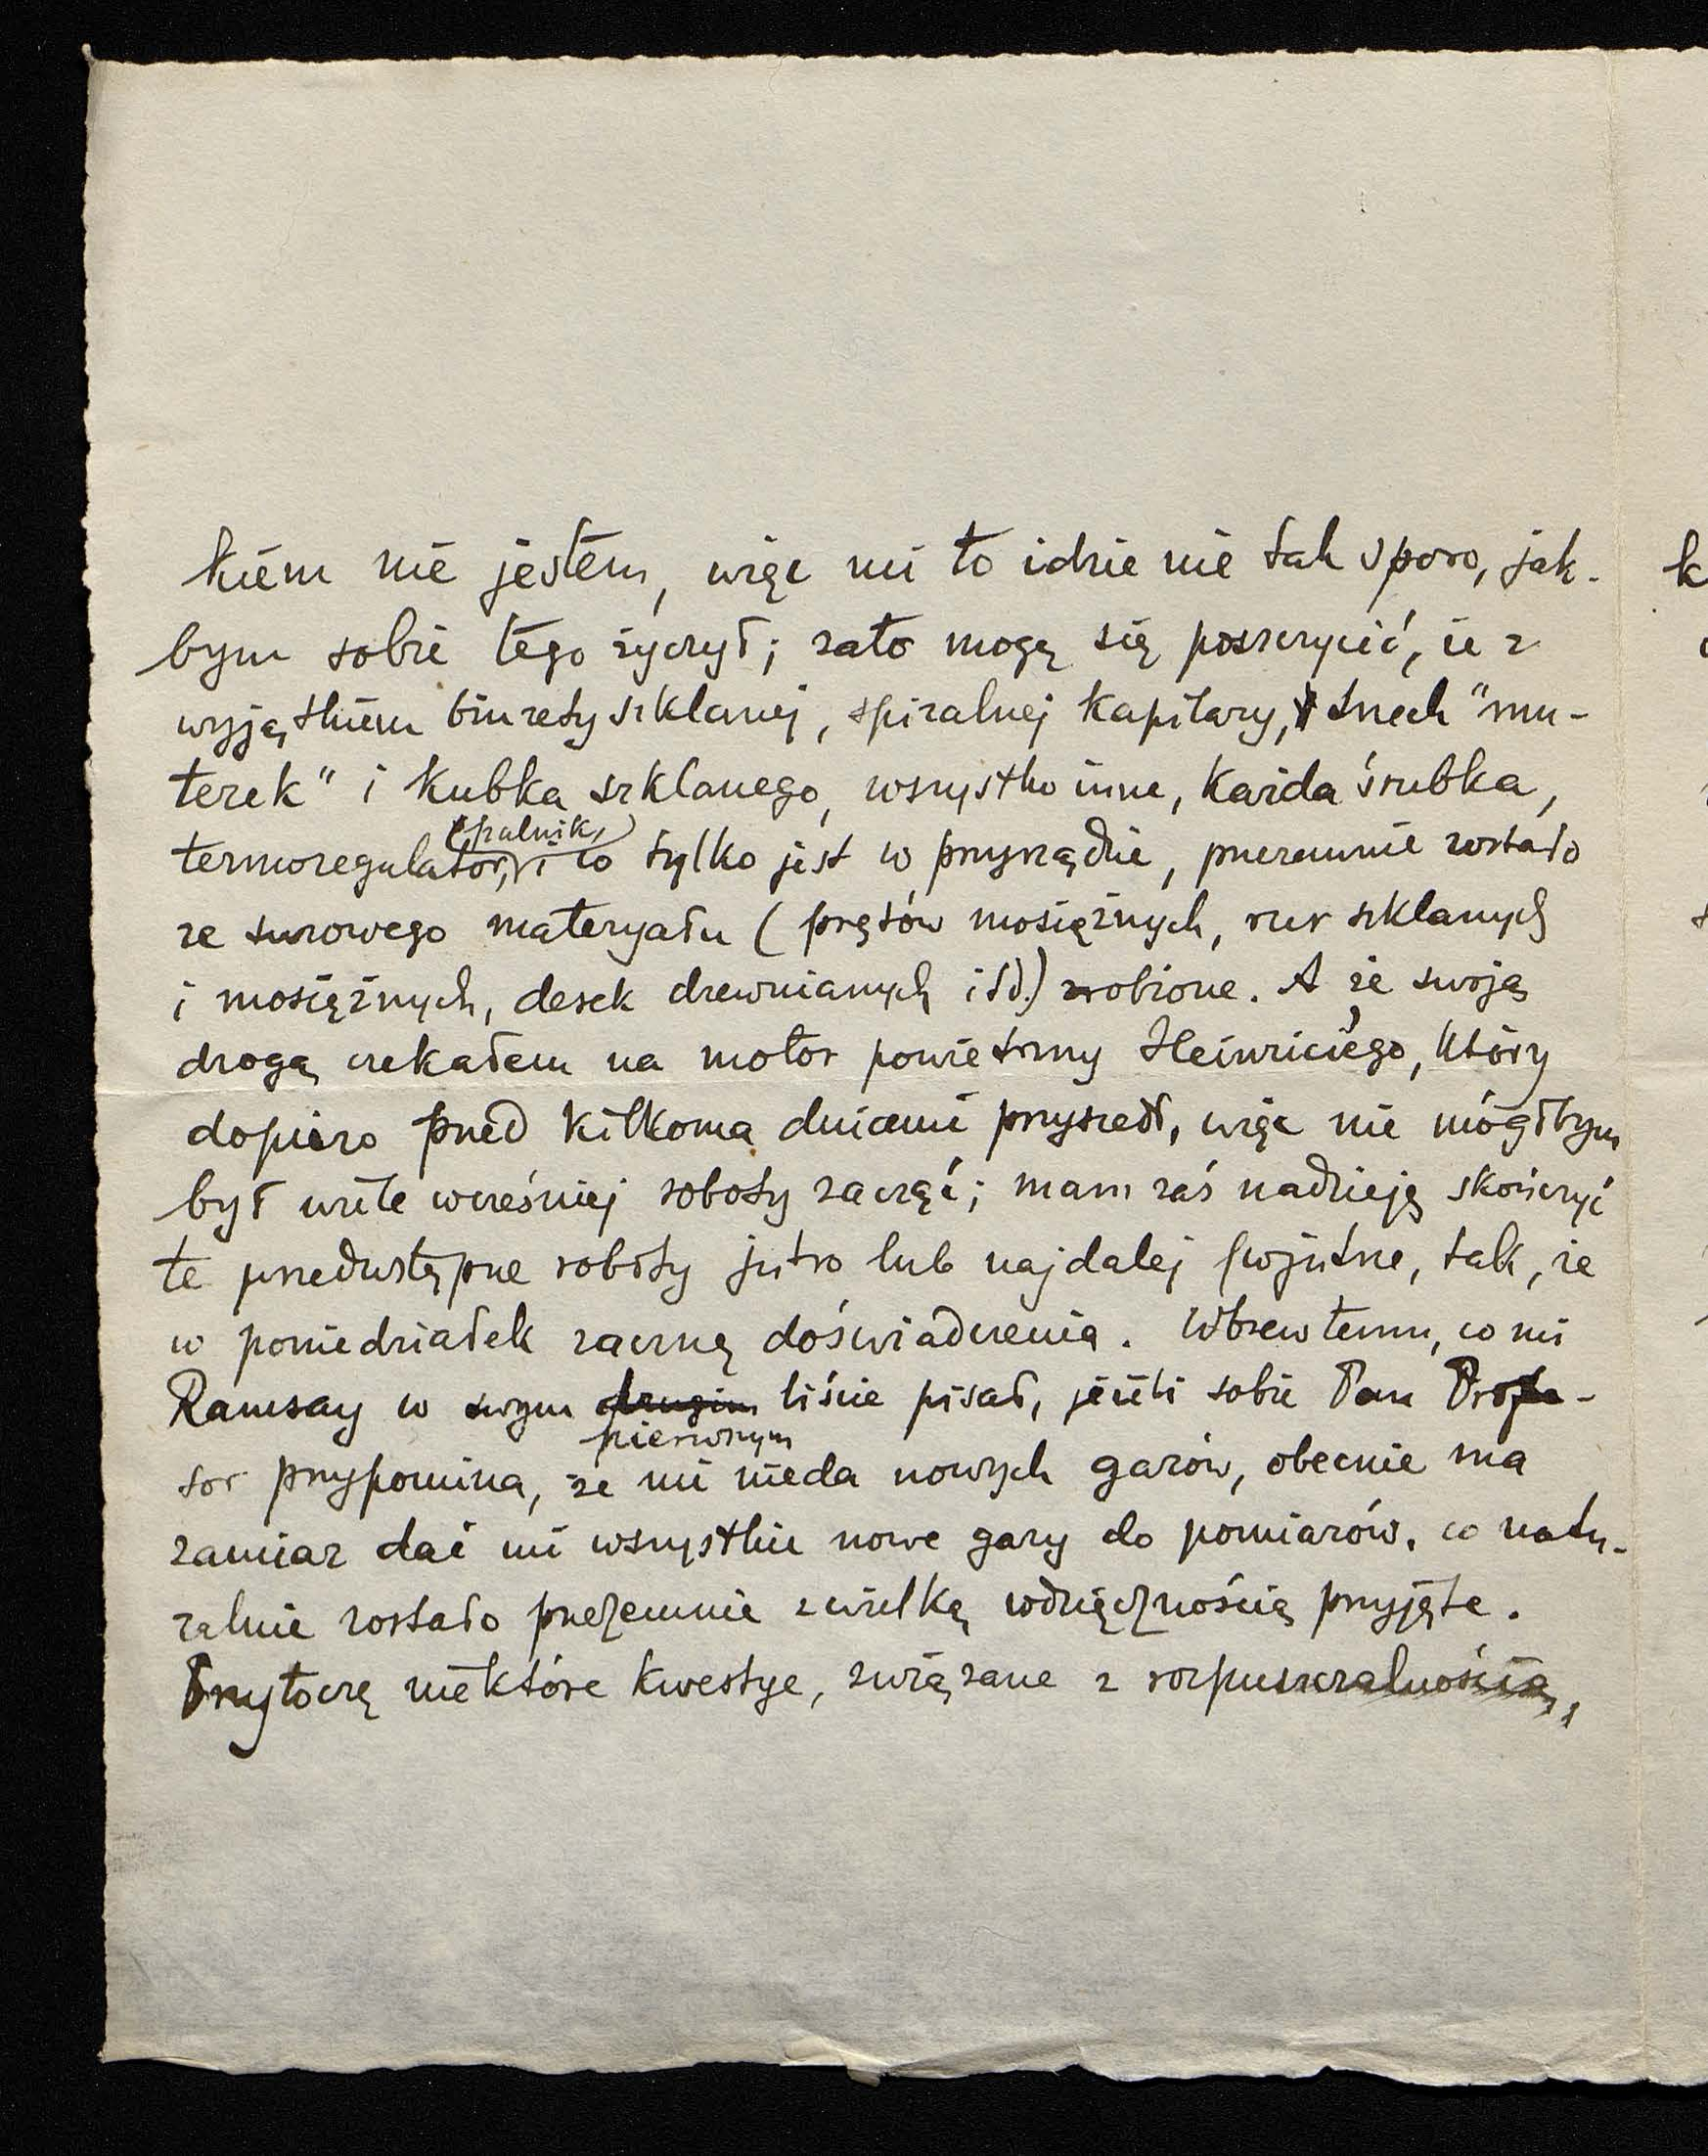 kiem nie jestem, więc mi to idzie nie tak sporo, jak-
bym sobie tego życzył; zato mogę się poszczycić, że z
wyjątkiem biurety szklanej, spiralnej kapilary, trzech "mu-
terek" i kubka szklanego, wszystko inne, każda śrubka,
termoregulator, (palnik,) i co tylko jest w przyrządzie, przezemnie zostało
ze surowego materyału (prętów mosiężnych, rur szklanych
i mosiężnych, desek drewnianych itd.) zrobione. A że swoją
drogą czekałem na motor powietrzny Heinriciego, który
dopiero przed kilkoma dniami przyszedł, więc nie mógłbym
był wiele wcześniej roboty zacząć; mam zaś nadzieję skończyć
te przedwstępne roboty jutro lub najdalej pojutrze, tak, że
w poniedziałek zacznę doświadczenia. Wbrew temu, co mi
Ramsay w swym drugim pierwszym liście pisał, jeżeli sobie Pan Profe-
sor przypomina, że mi nieda nowych gazów, obecnie ma
zamiar dać mi wszystkie nowe gazy do pomiarów, co natu-
ralnie zostało przezemnie z wielką wdzięcznością przyjęte.
Przytoczę niektóre kwestye, związane z rozpuszczalnością,
k